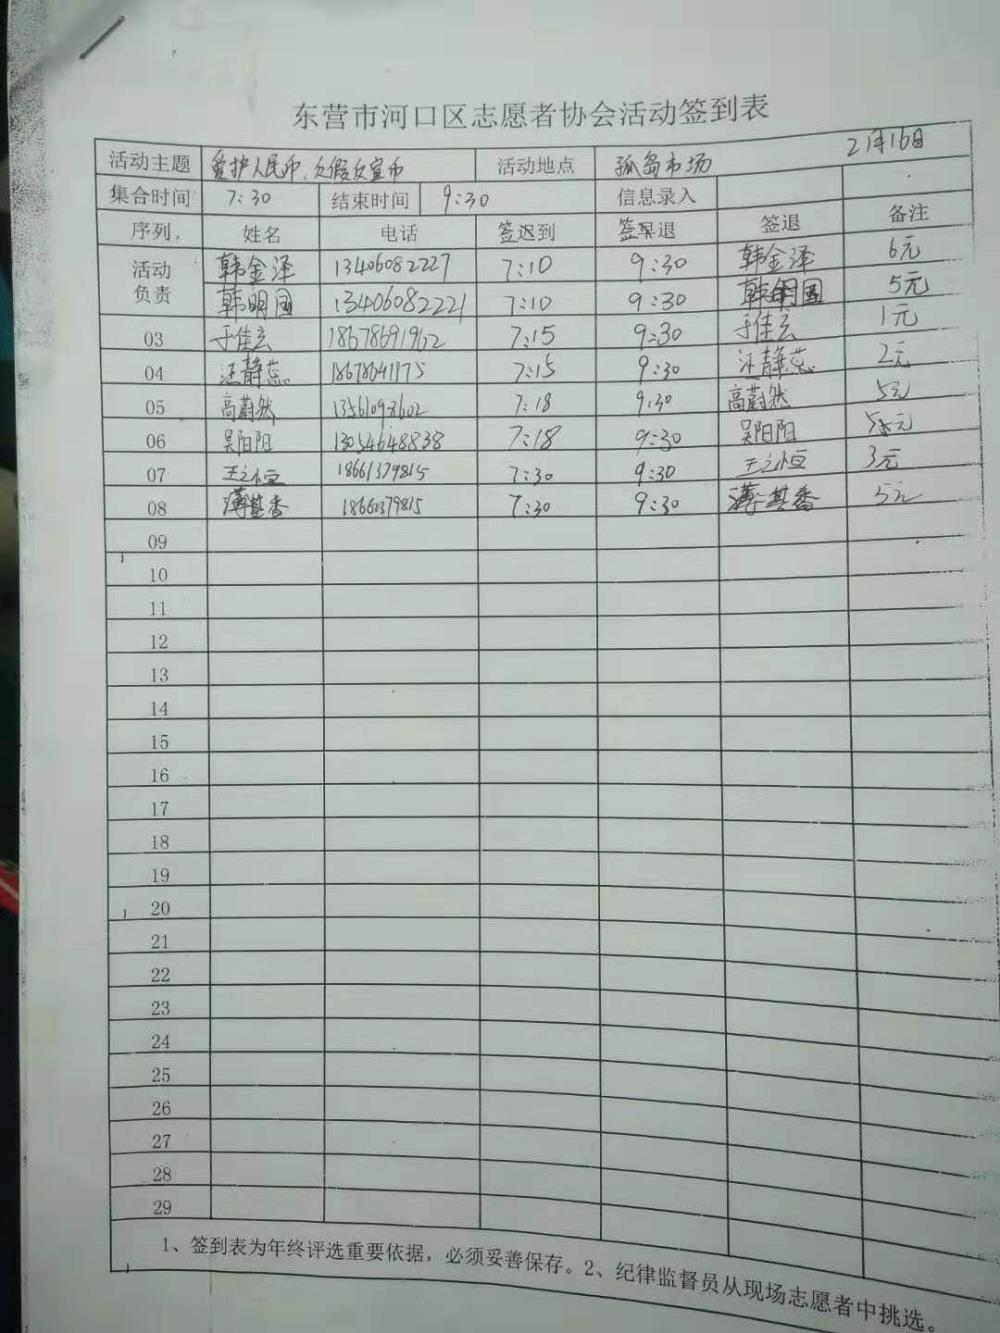 东营市河口区志愿者协会活动签到表
2月16日
活动主题 爱护人民币、反假宣币 活动地点 孤岛市场
集合时间 7:30 结束时间 9:30 信息录入
序列 姓名 电话 签迟到 签早退 签退 备注
活动负责 韩金泽 13406082227 7:10 9:30 韩金泽 6元
韩明国 13406082221 7:10 9:30 韩明国 5元
03 于佳云 18678691962 7:15 9:30 于佳云 1元
04 汪静蕊 18678641175 7:15 9:30 汪静蕊 2元
05 高蔚然 7:18 9:30 高蔚然 5元
06 吴阳阳 13054648838 7:18 9:30 吴阳阳 5元
07 王之恒 18661379815 7:30 9:30 王之恒 3元
08 薄其香 18660379815 7:30 9:30 薄其香 5元
09
10
11
12
13
14
15
16
17
18
19
20
21
22
23
24
25
26
27
28
29
1、签到表为年终评选重要依据，必须妥善保存。2、纪律监督员从现场志愿者中挑选。